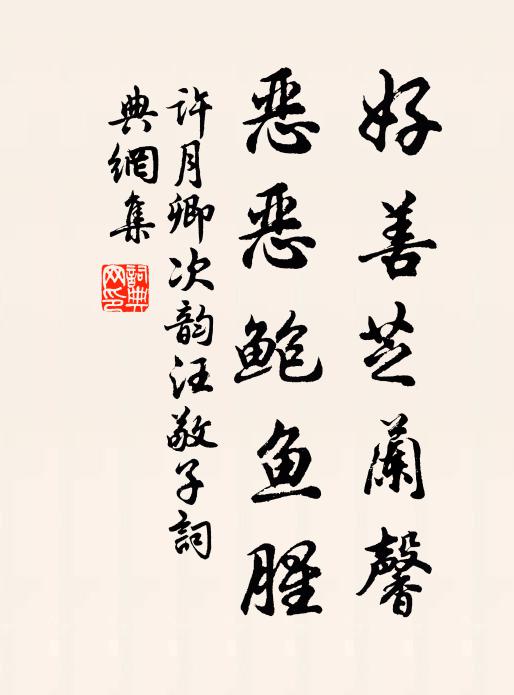 好善芝蘭馨
惡惡鲍鱼腥
许月卿次韵汪敬子詞
典網集
詞典網印